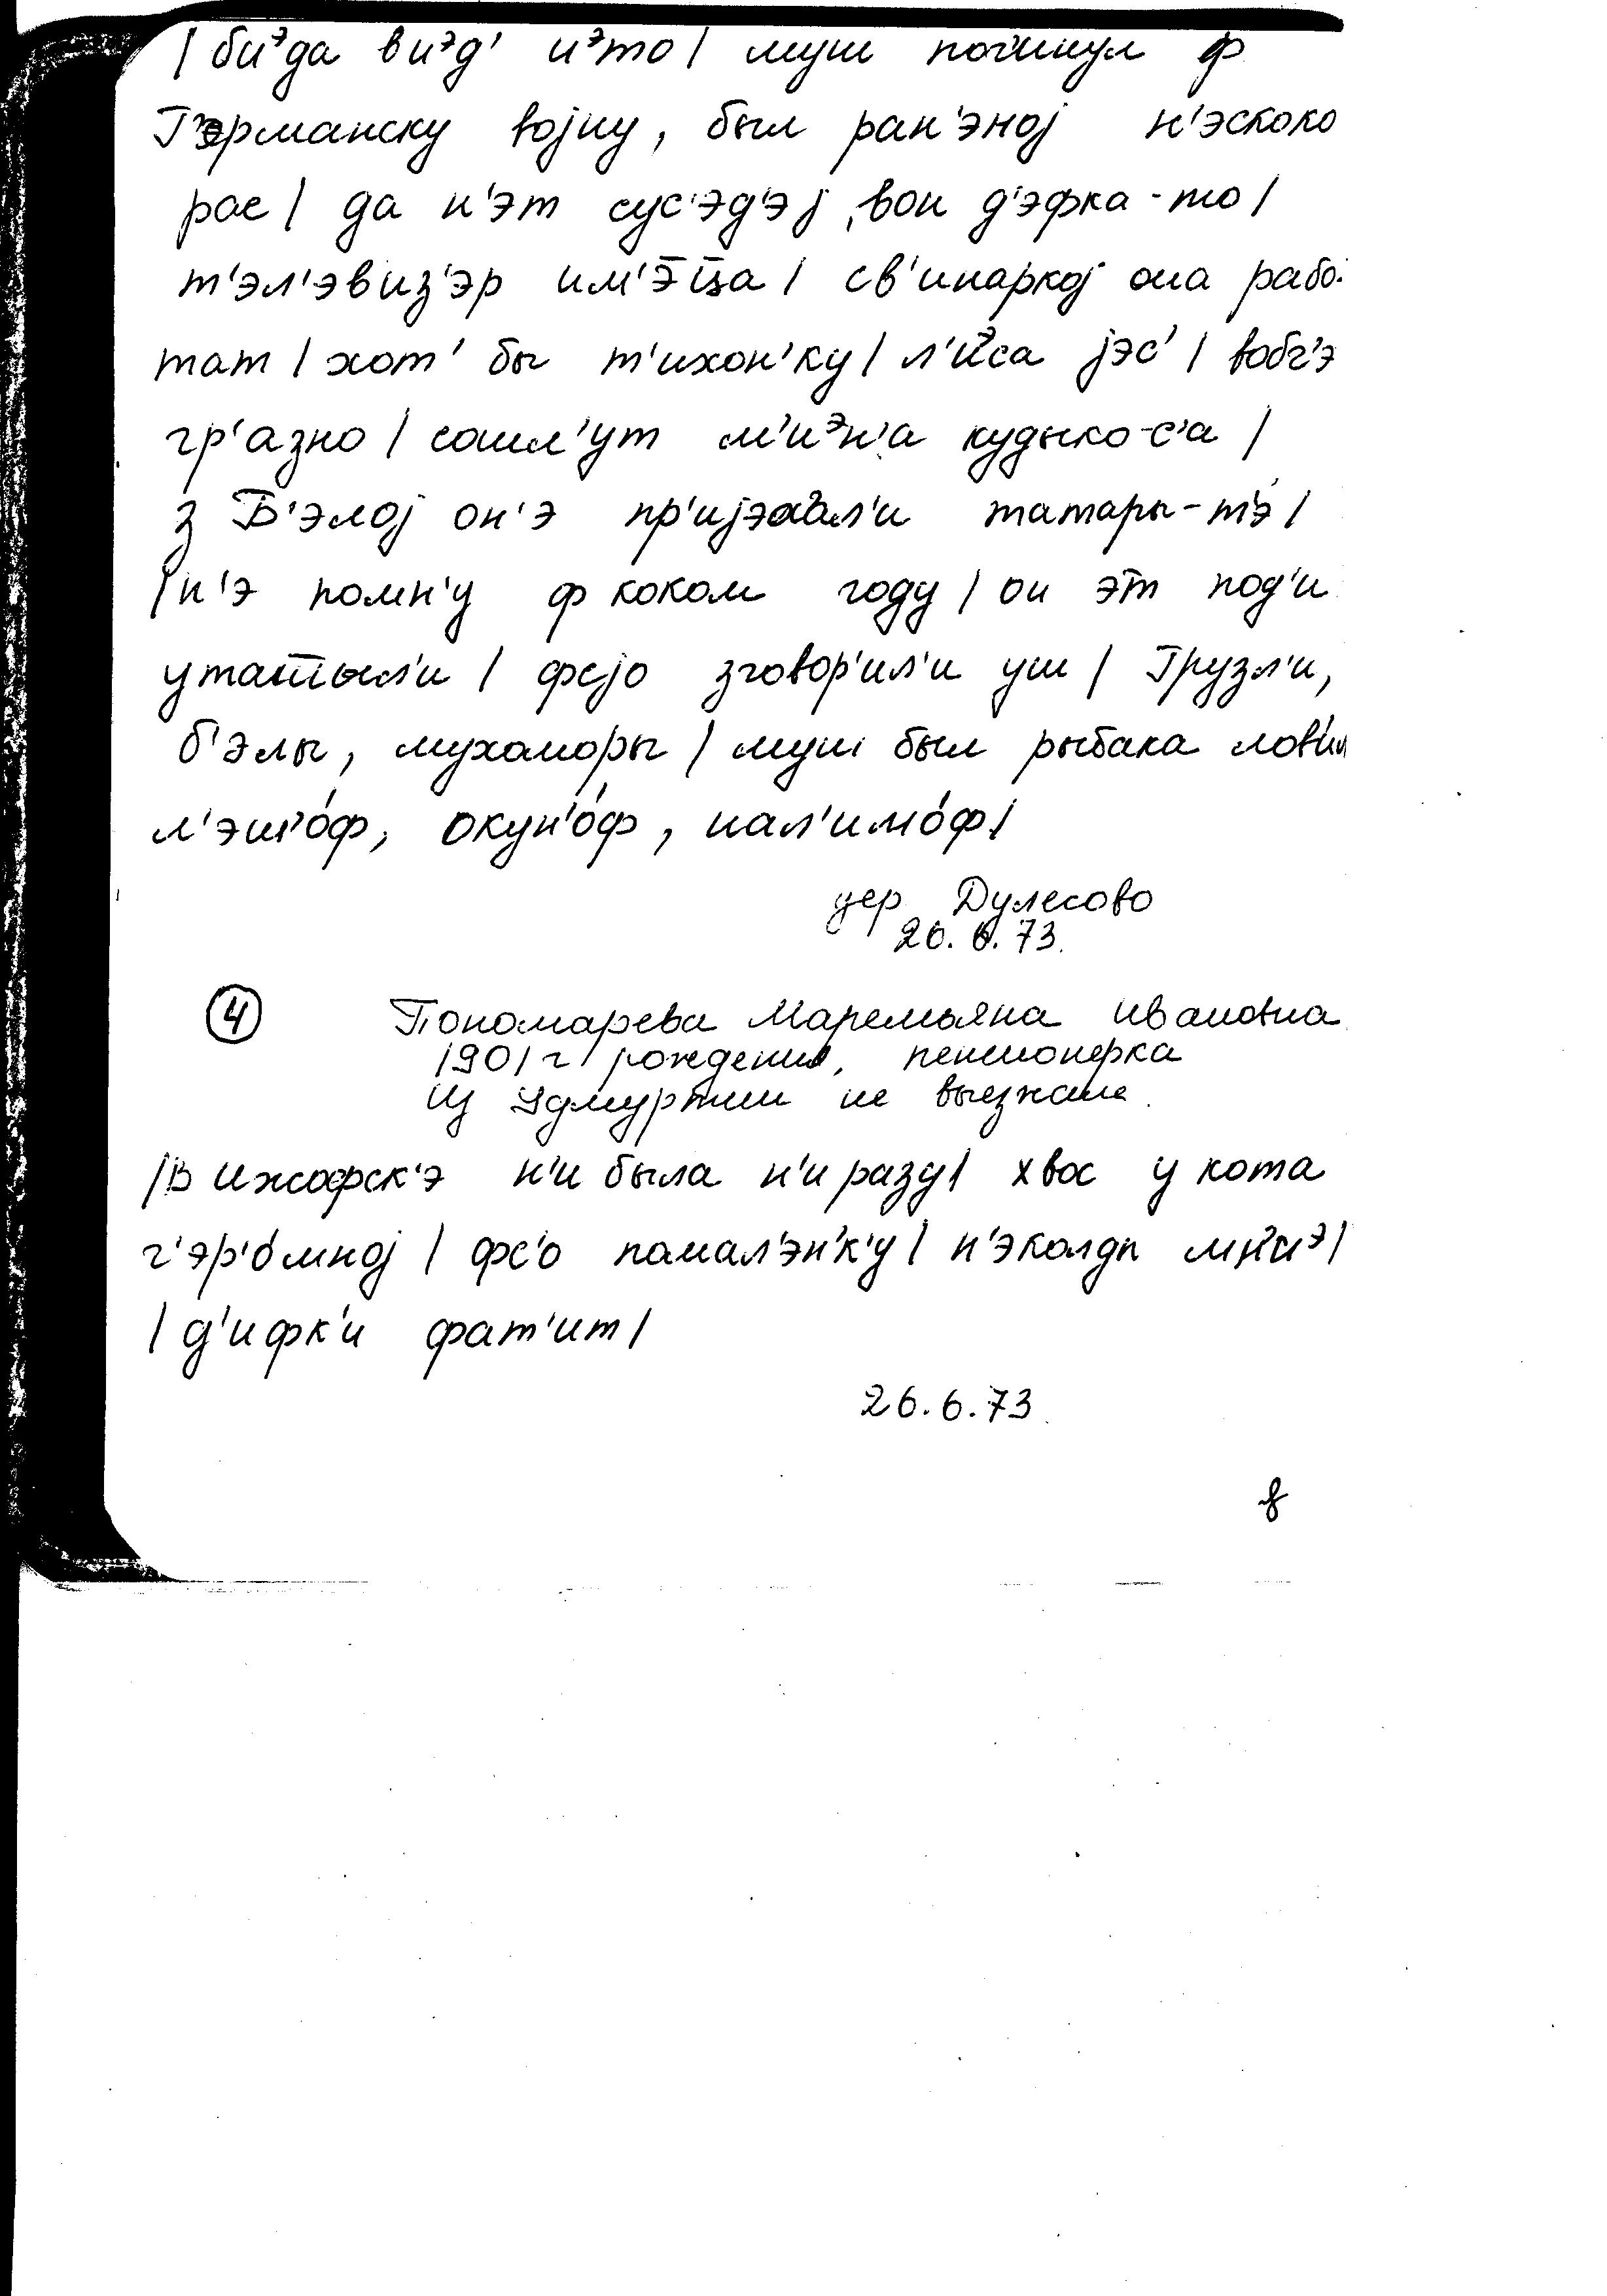 | биэда виэд' иэто | муш пог'инул ф
Г'эрманску војну, был ран'эној н'эскоко
рас | да н'эт сус'эд'эј, вон д'эфка-то |
т'эл'эвиз'эр им'э̄ц̄а | св'инаркој она рабо-
тат | хот' бы т'ихон'ку | л'иэса јэс' | вобг'э
гр'азно | сошл'ут м'иэн'а кудыко-с'а |
з Б'элој он'э пр'ијэхал'и татары-т'э |
| н'э помн'у ф коком году | он эт под'и
утат̄ыл'и | фсјо зговор'ил'и уш | Грузл'и,
б'элы, мухоморы | муш был рыбака лов'ил
л'эш'о́ф, окун'о́ф, нал'имо́ф |
дер Дулесово
26.6.73.
4 Пономарева Маремьяна Ивановна
1901 г рождения, пенсионерка
Из Удмуртии не выезжала.
| В Ижофск'э н'и была н'и разу | хвос у кота
г'эр'о́мној | фс'о помал'эн'к'у | н'эколдп мн'иэ |
| д'ифк'и фат'ит |
26.6.73.